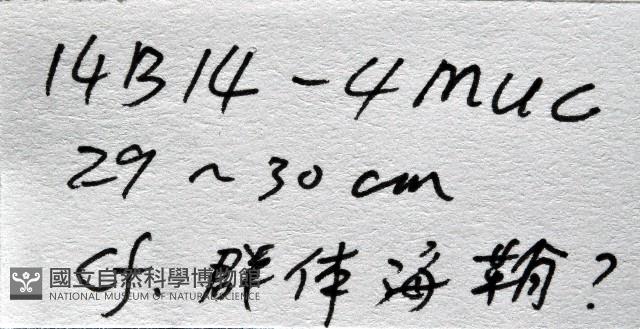 14B14-4MUC
29~30cm
cf. 群体海鞘?
國立自然科學博物館
NATIONAL MUSEUM OF NATURAL SCIENCE